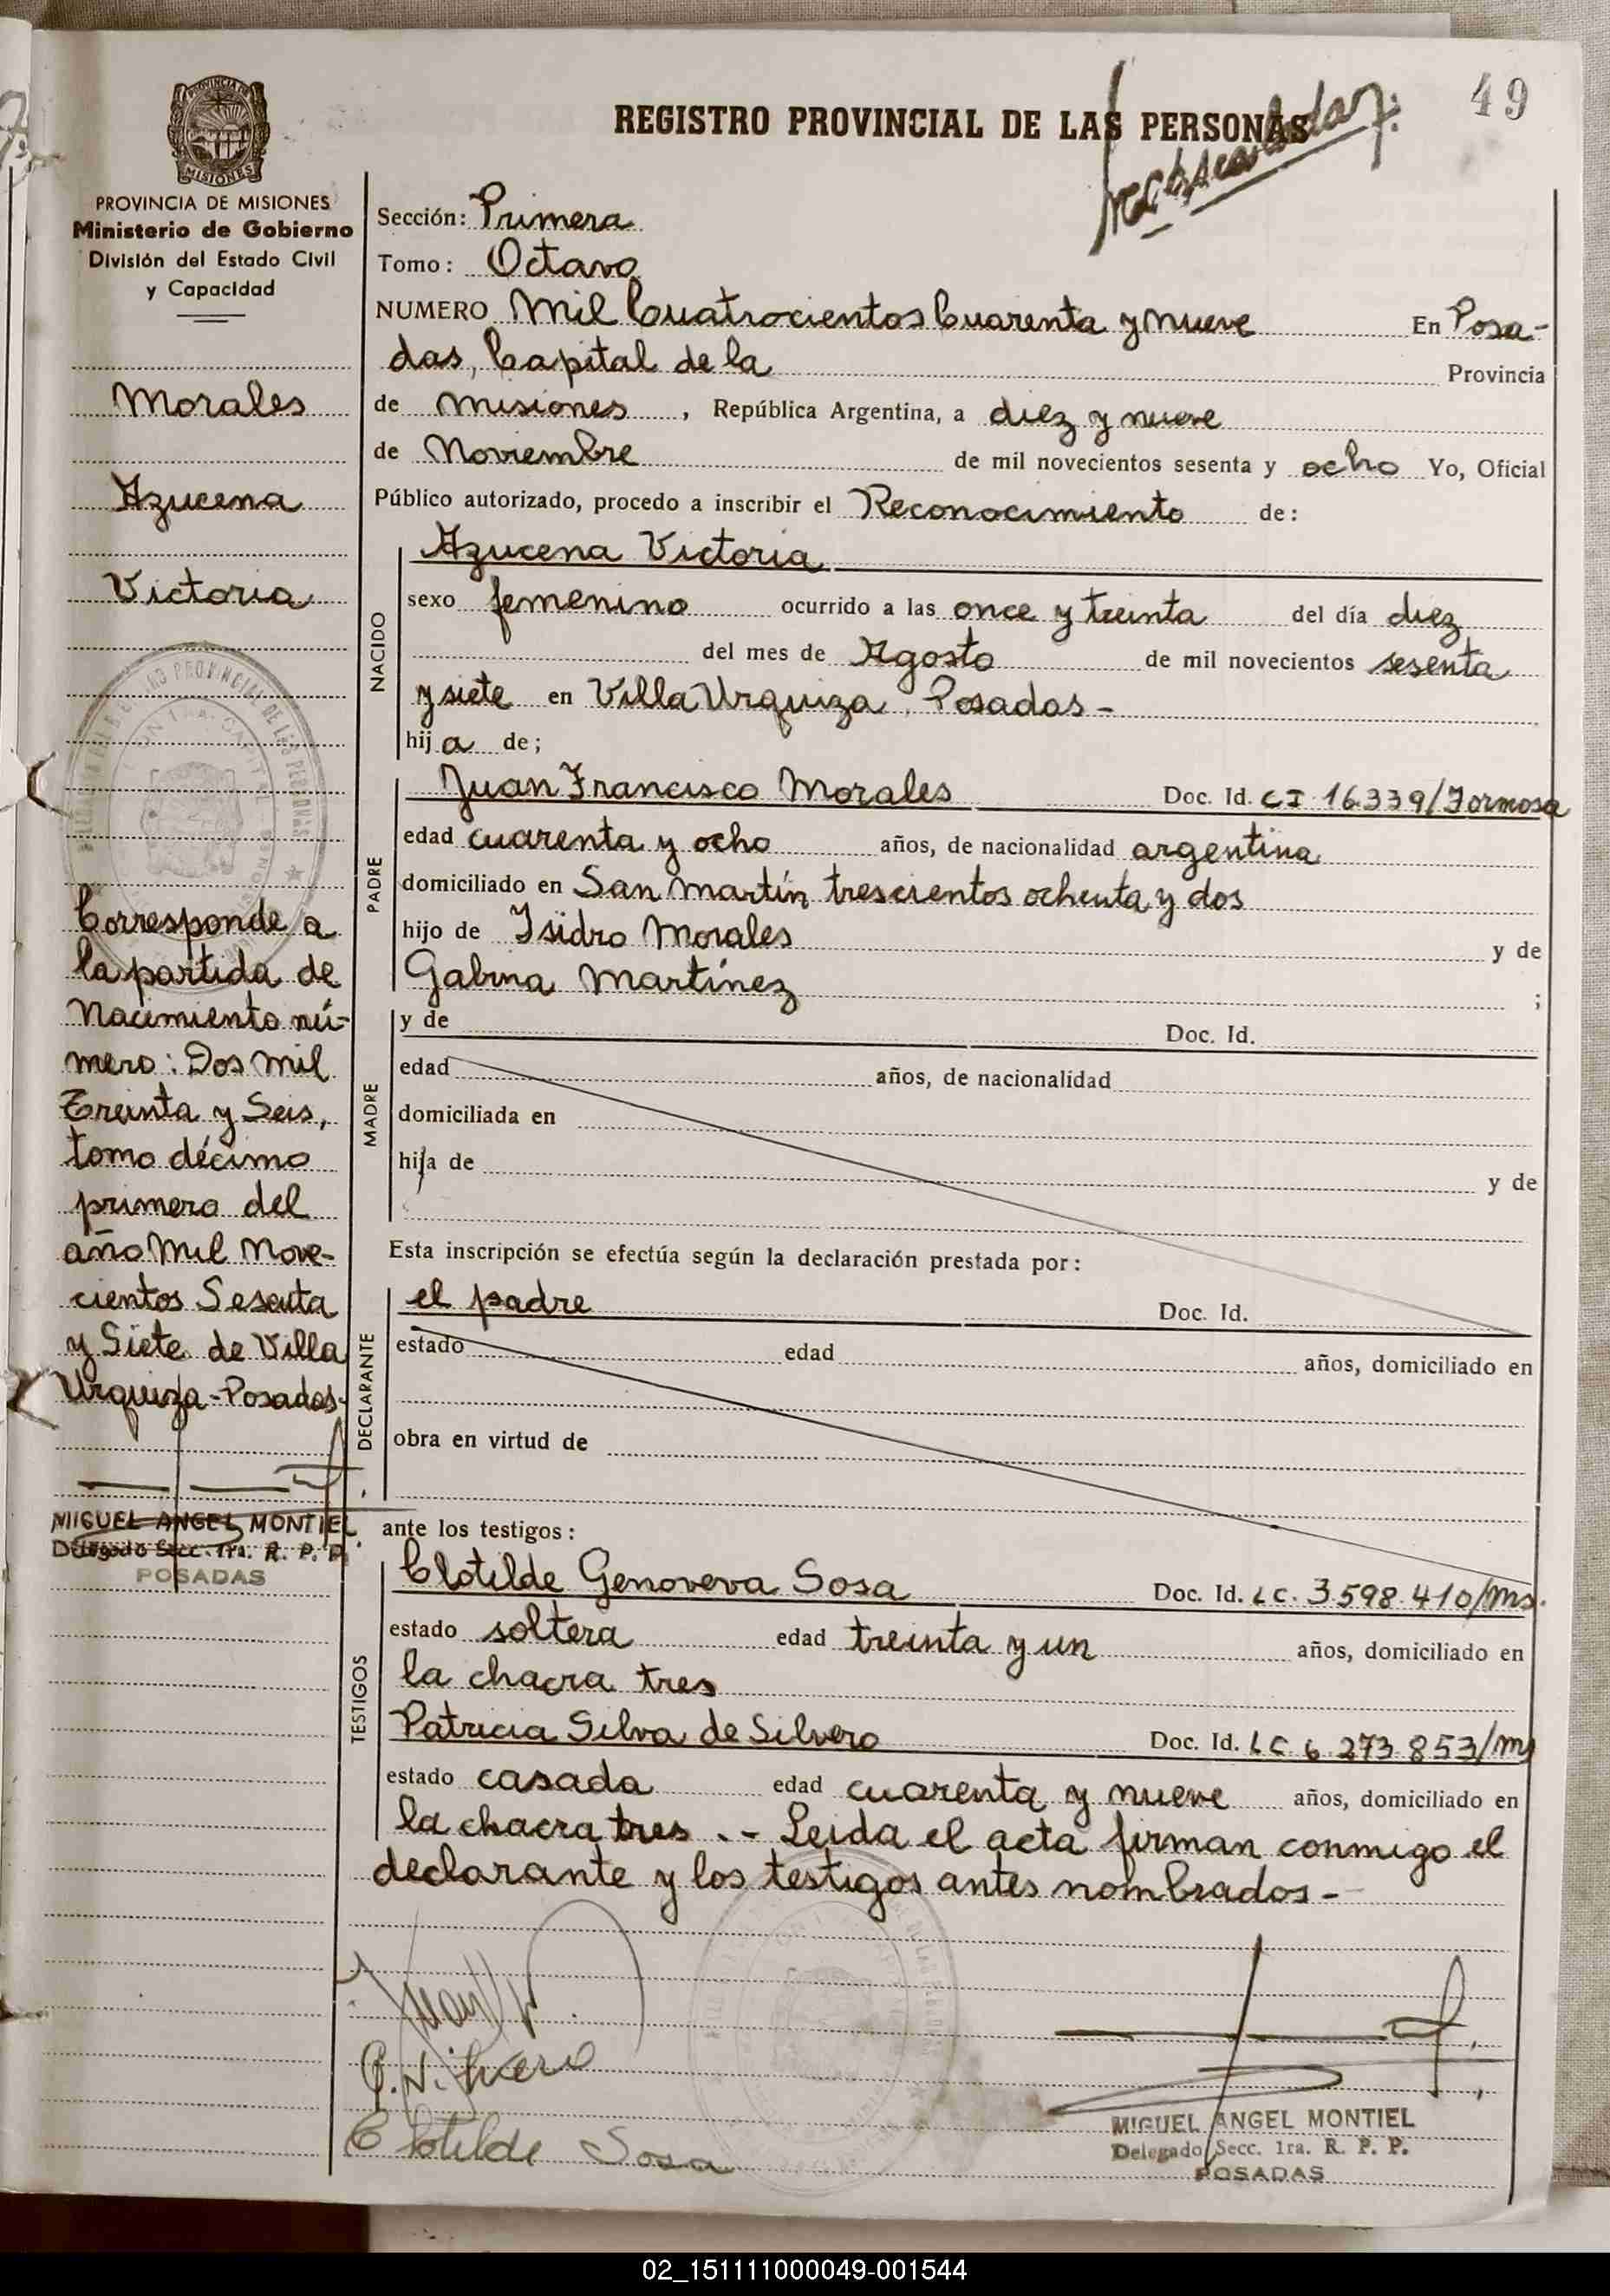 49
REGISTRO PROVINCIAL DE LAS PERSONAS
PROVINCIA DE MISIONES
Ministerio de Gobierno
División del Estado Civil
y Capacidad
Morales
Azucena
Victoria
Corresponde a
la partida de
Nacimiento nú-
mero: Dos mil
Treinta y Seis,
tomo décimo
primero del
año Mil Nove-
cientos Sesenta
y Siete de Villa
Urquiza-Posadas-
MIGUEL ANGEL MONTIEL
Delegado Secc. 1ra. R. P. P.
POSADAS
Sección: Primera
Tomo: Octavo
NUMERO Mil Cuatrocientos Cuarenta y nueve En Posa-
das, Capital de la Provincia
de Misiones, República Argentina, a diez y nueve
de Noviembre de mil novecientos sesenta y ocho Yo, Oficial
Público autorizado, procedo a inscribir el Reconocimiento de:
NACIDO
Azucena Victoria
sexo femenino ocurrido a las once y treinta del día diez
del mes de Agosto de mil novecientos sesenta
y siete en Villa Urquiza, Posadas-
hija de;
PADRE
Juan Francisco Morales Doc. Id. CI 16.339/Formosa
edad cuarenta y ocho años, de nacionalidad argentina
domiciliado en San Martín trescientos ochenta y dos
hijo de Isidro Morales y de
Gabina Martínez ;
MADRE
y de Doc. Id.
edad años, de nacionalidad
domiciliada en
hija de y de
Esta inscripción se efectúa según la declaración prestada por:
DECLARANTE
el padre Doc. Id.
estado edad años, domiciliado en
obra en virtud de
ante los testigos:
TESTIGOS
Clotilde Genoveva Sosa Doc. Id. LC. 3.598.410/Ms.
estado soltera edad treinta y un años, domiciliado en
la chacra tres
Patricia Silva de Silvero Doc. Id. LC 6.273.853/Ms
estado casada edad cuarenta y nueve años, domiciliado en
la chacra tres.- Leida el acta firman conmigo el
declarante y los testigos antes nombrados-
Clotilde Sosa
MIGUEL ANGEL MONTIEL
Delegado Secc. 1ra. R. P. P.
POSADAS
02_151111000049-001544